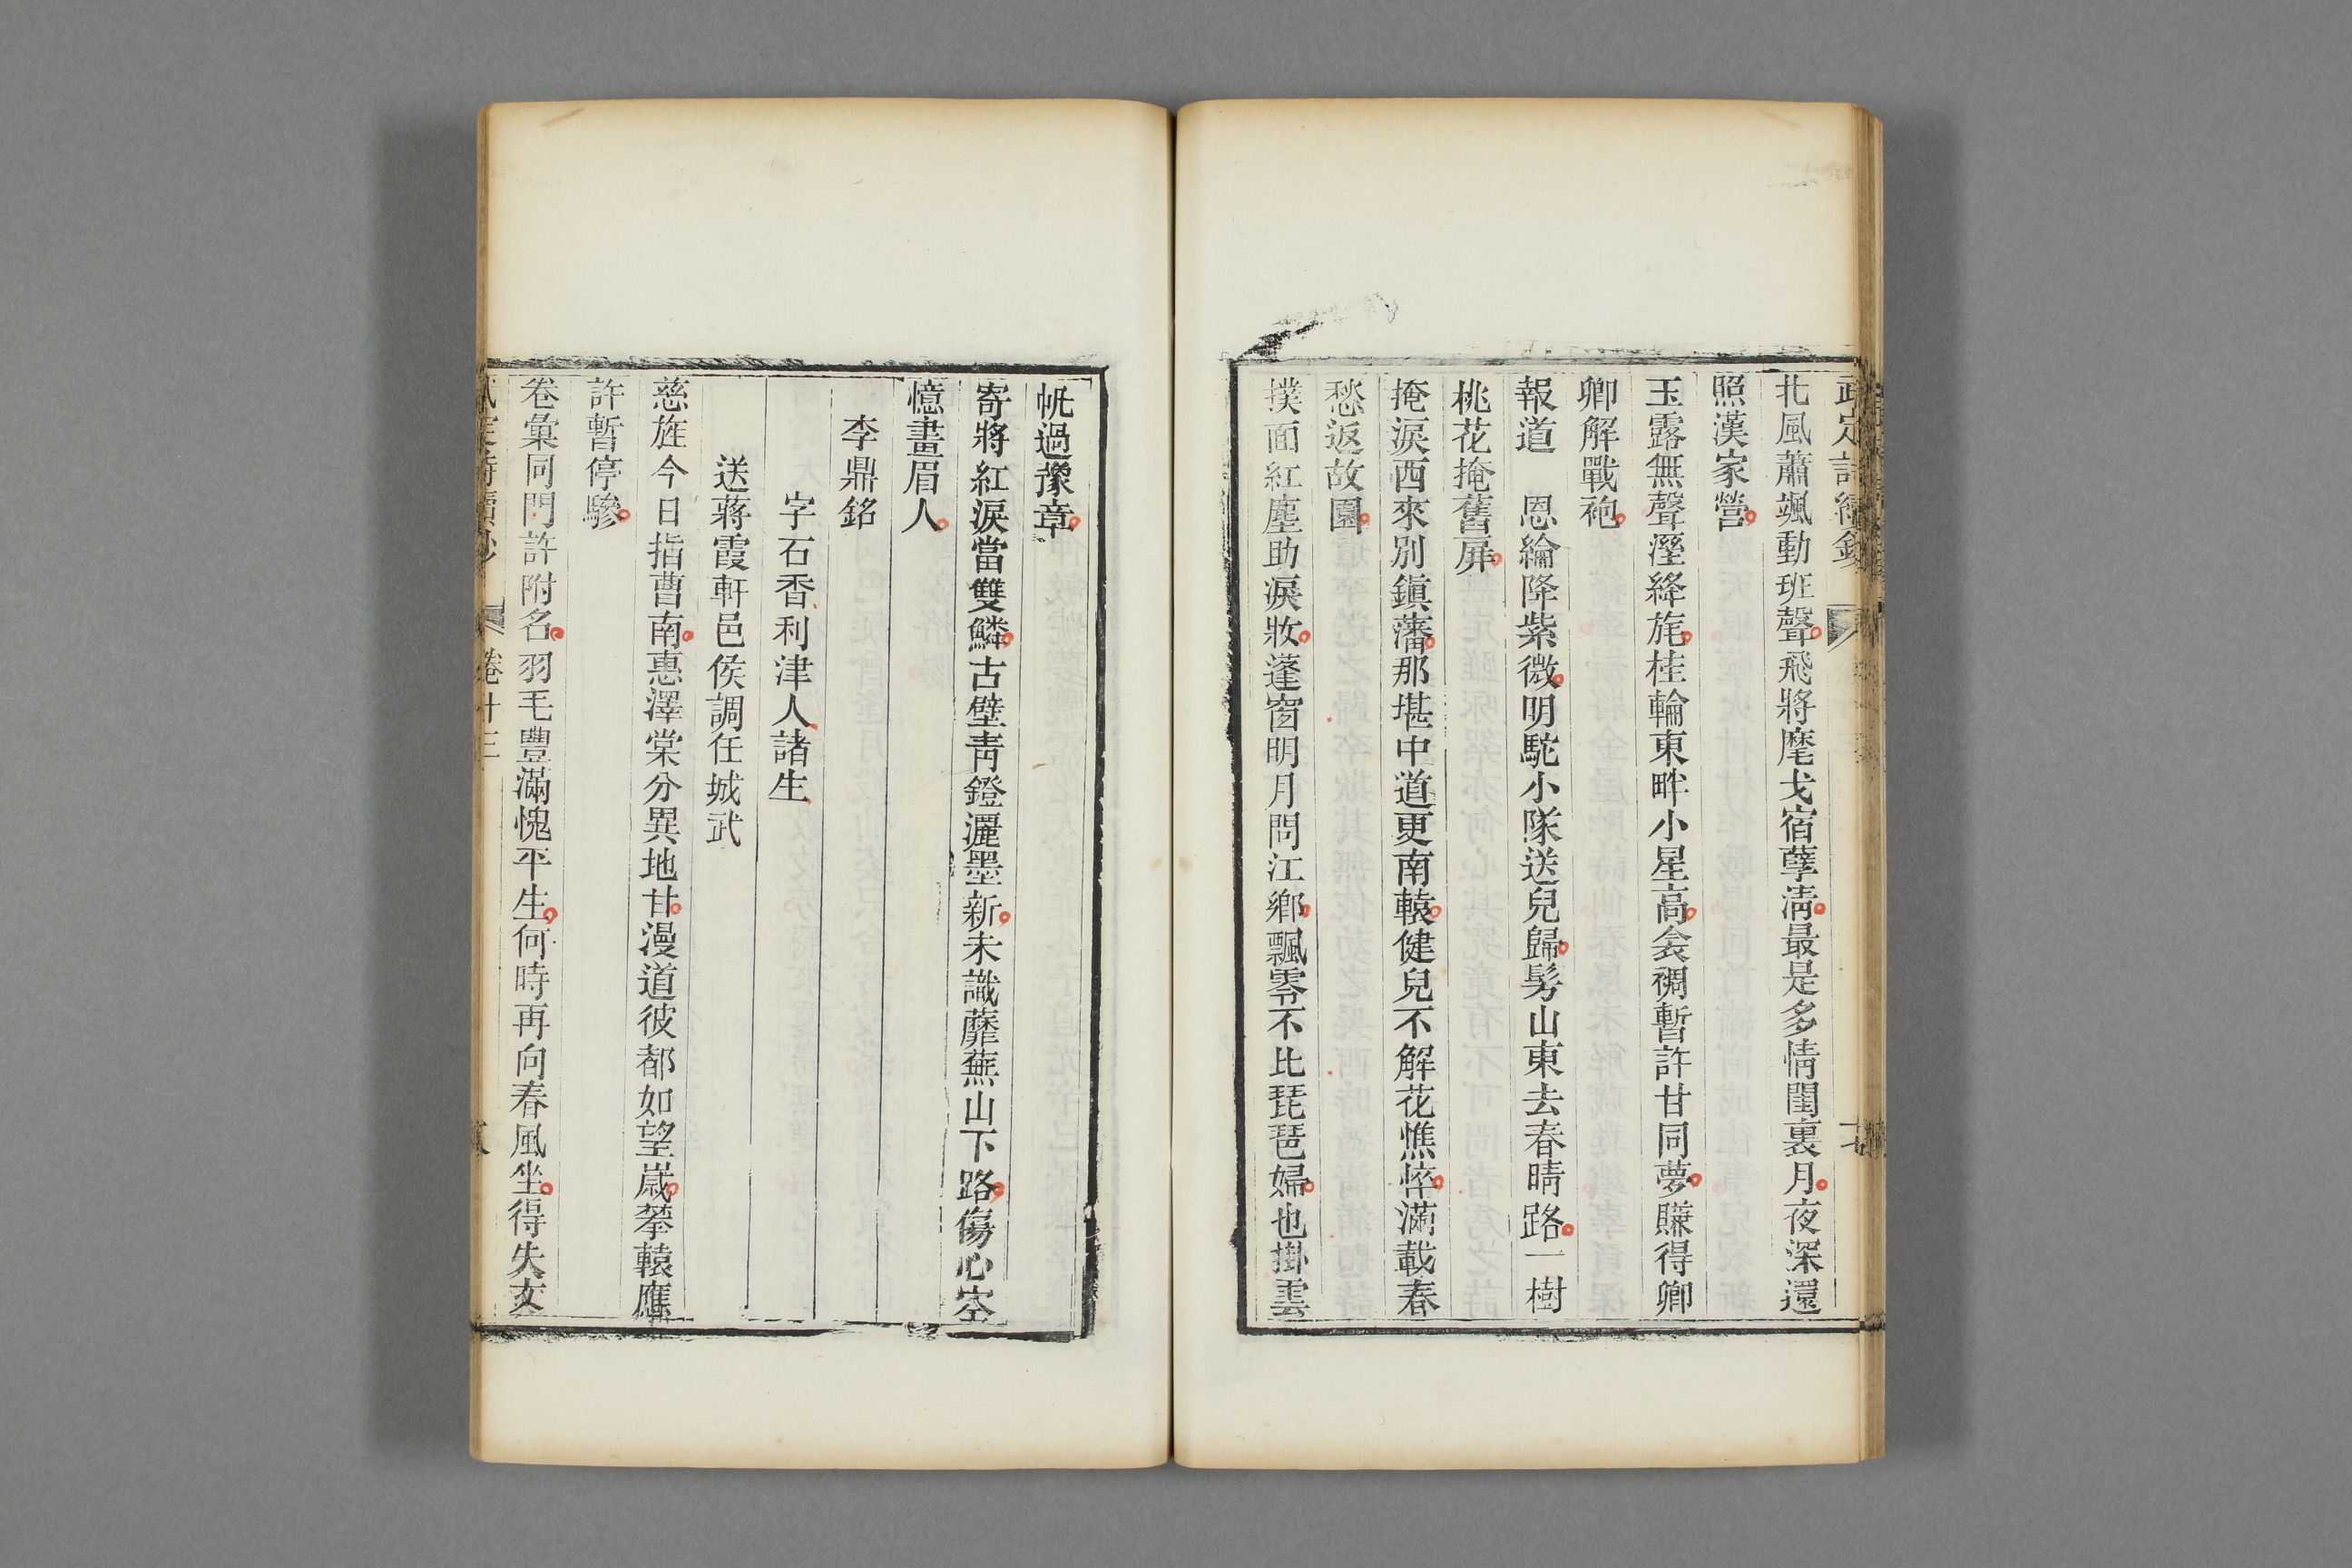 武定詩續鈔
北風蕭颯動班聲飛將麾戈宿孽清最是多情閨裏月夜深還
照漢家營
玉露無聲溼絳旄桂輪東畔小星高衾裯暫許甘同夢賺得卿
卿解戰袍
報道　恩綸降紫微明駝小隊送兒歸勞山東去春晴路一樹
桃花掩舊屏
掩淚西來別鎮藩那堪中道更南轅健兒不解花憔悴滿載春
愁返故園
撲面紅塵助淚妝蓬窗明月問江鄉飄零不比琵琶婦也掛雲
帆過豫章
寄將紅淚當雙鱗古壁青鐙灑墨新未識蘼蕪山下路傷心空
憶畫眉人
李鼎銘
字石香利津人諸生
送蔣霞軒邑侯調任城武
慈旌今日指曹南惠澤棠分異地甘漫道彼都如望歲攀轅應
許暫停驂
卷彙同門許附名羽毛豐滿愧平生何時再向春風坐得失文
武定詩續鈔　卷十三